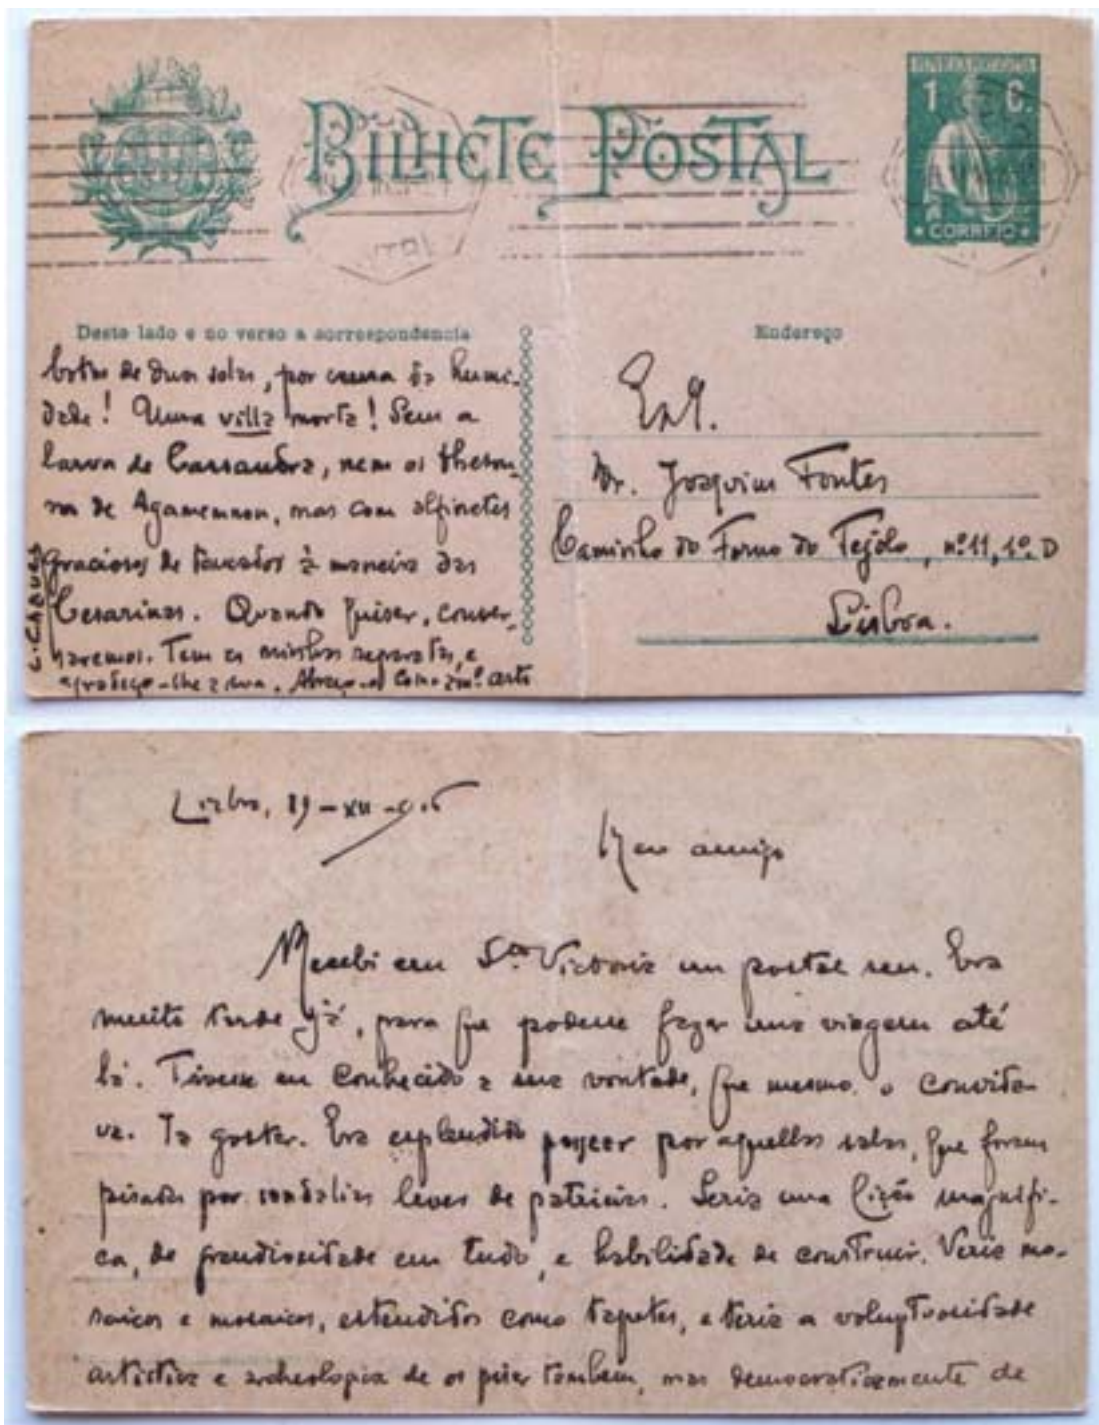 BILHETE POSTAL
1 C.
CORREIO
Deste lado e no verso a correspondencia
Endereço
botas de duas solas, por causa da humi-
dade! Uma villa morta! Sem a
larva de Cassandra, nem os thesou-
ros de Agamemnon, mas com alfinetes
graciosos de toucador à maneira das
Cesarinas. Quando quiser, conver-
saremos. Tem as minhas separatas, e
agradeço-lhe a sua. Abraço-o como am.º certo
Dr. Joaquim Fontes
Caminho do Forno do Tejólo, nº 11, 1º. D
Lisboa.
Lisboa, 19-XII-
Meu amigo
Recebi em S.ta Victoria um postal seu. Era
muito tarde já, para que podesse fazer uma viagem até
lá. Tivesse eu conhecido a sua vontade, que mesmo o convida-
va. Ia gostar. Era esplendido passear por aquellas salas, que foram
pisadas por sandalias leves de patricias. Seria uma lição magnifi-
ca, de grandiosidade em tudo, e habilidade de construir. Veria mo-
saicos e mosaicos, estendidos como tapetes, e teria a voluptuosidade
artistica e archeologica de os pisar tambem, mas democraticamente de